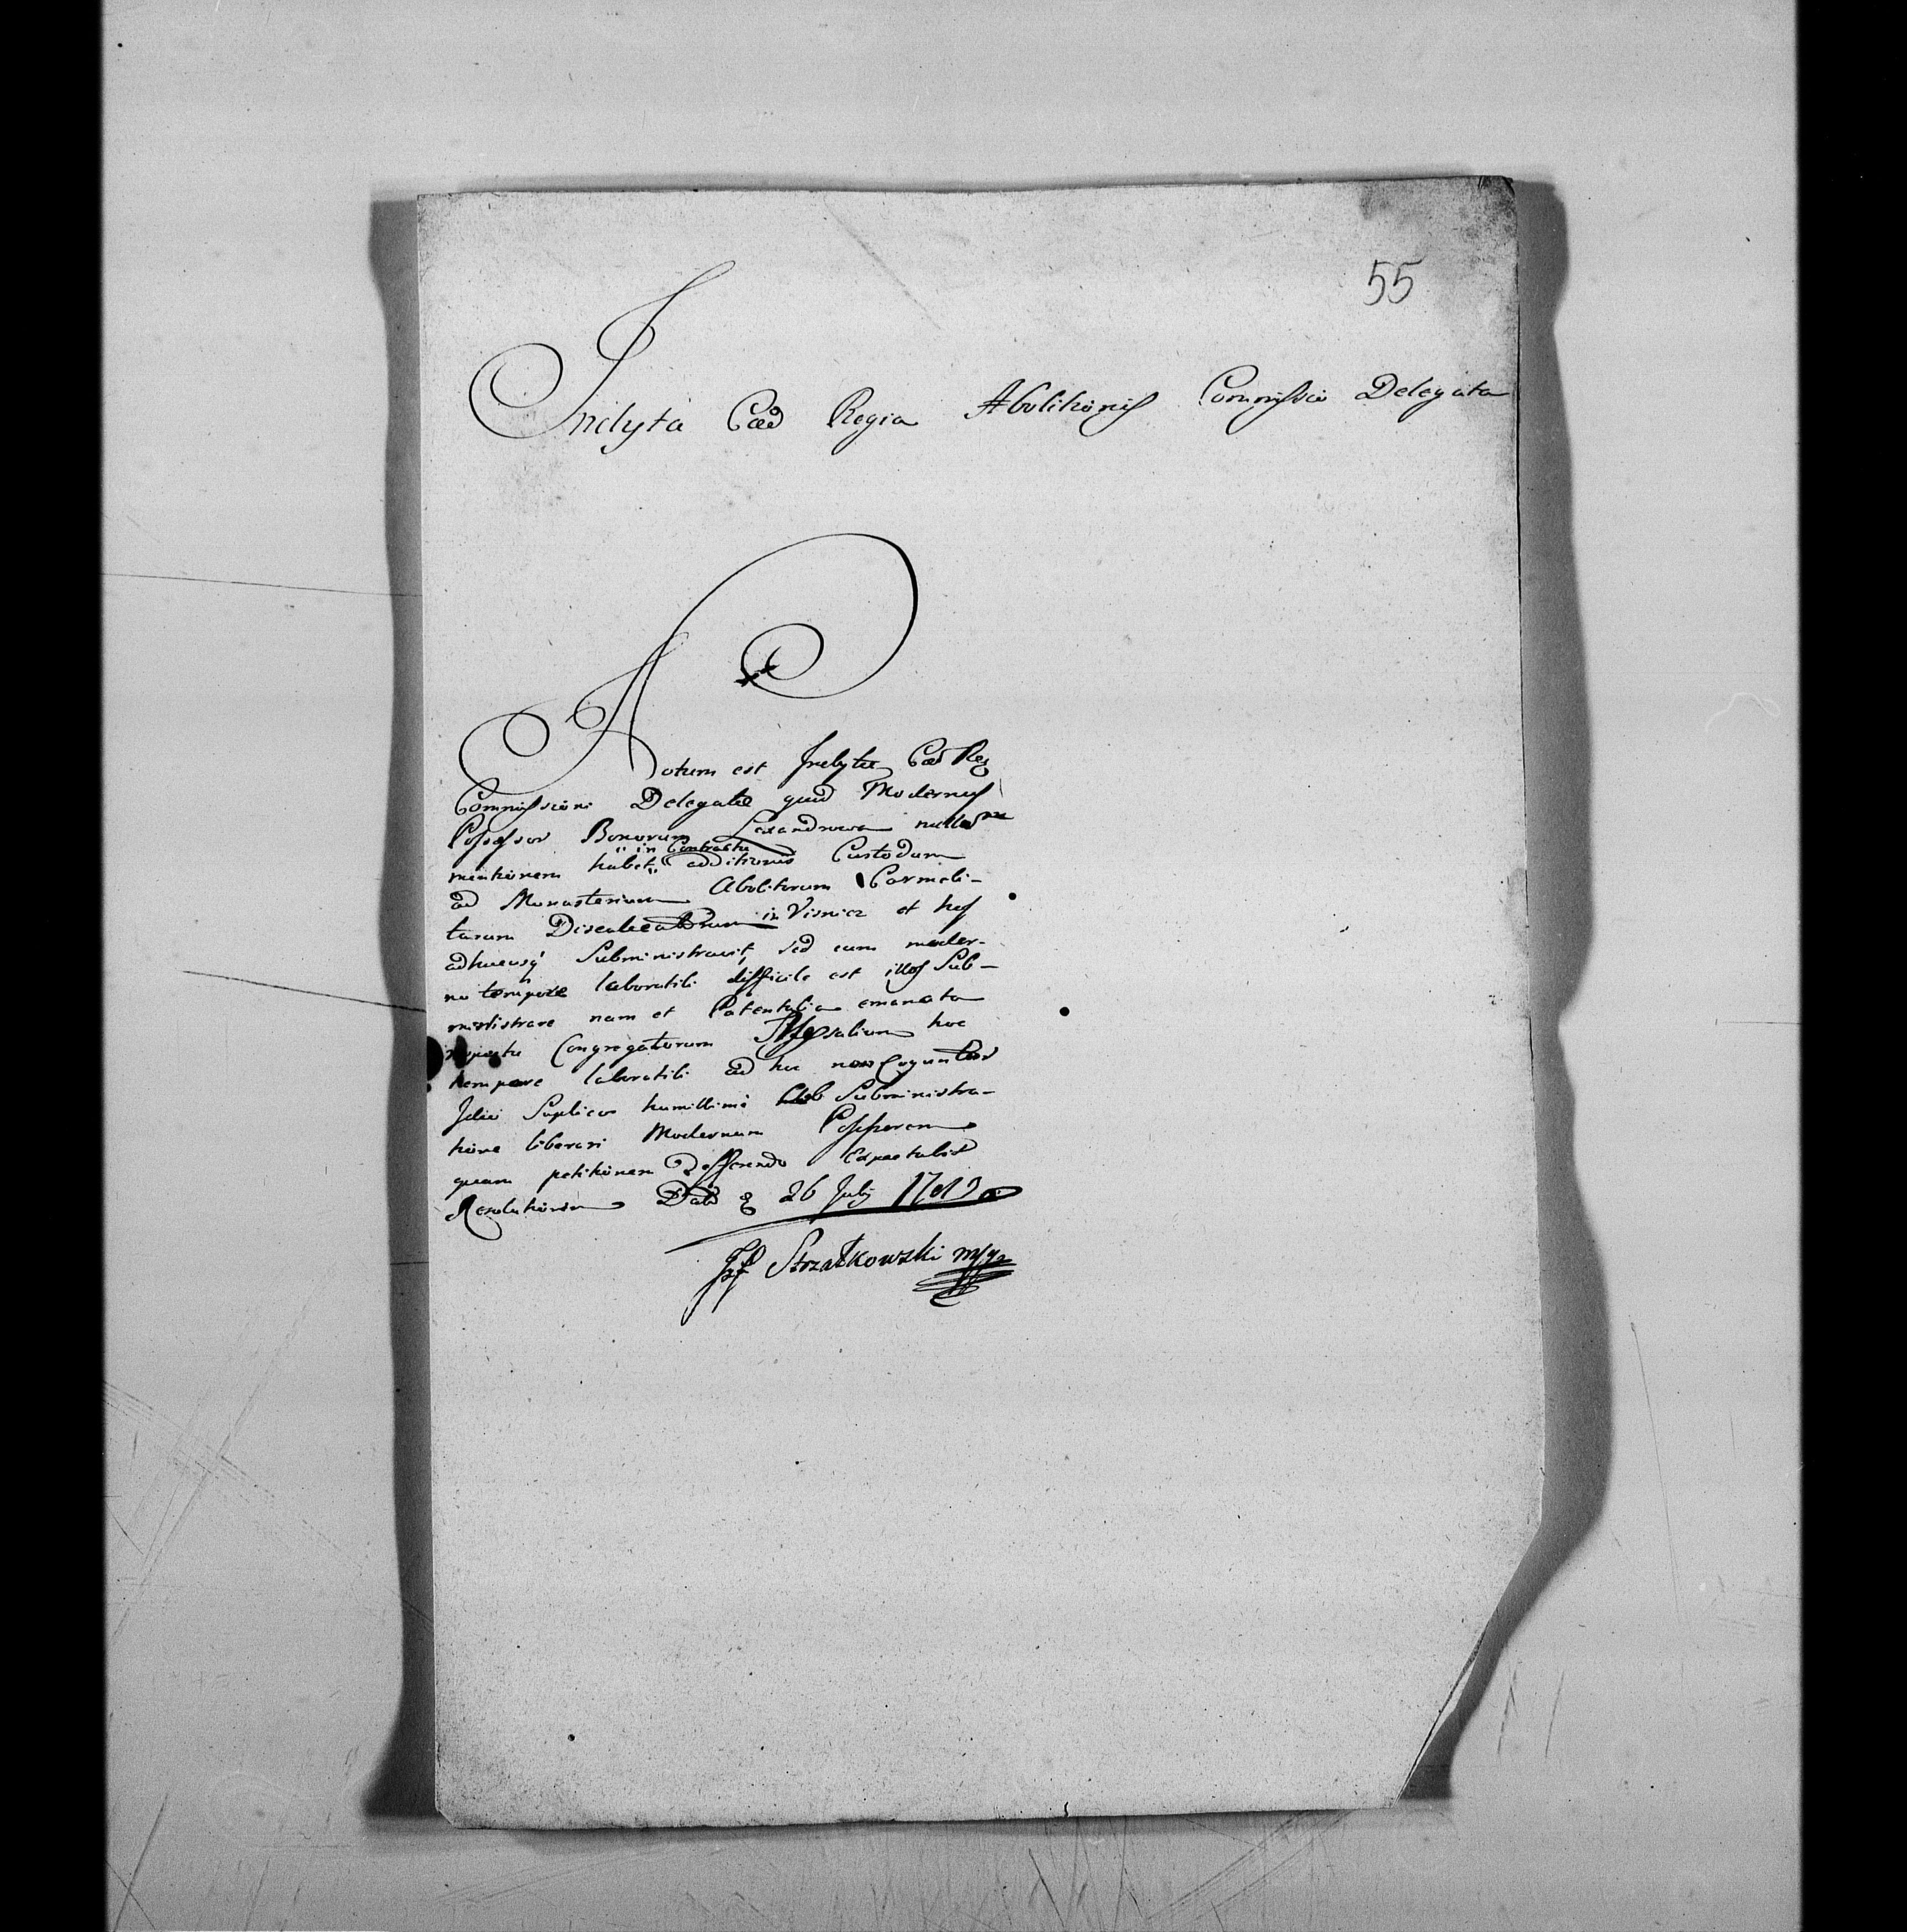 55
Inclyta Cæs Regia Abolitionis Commissio Delegata
Notum est Inclytæ Cæs Reg
Commissioni Delegatæ quod Modernus
Possessor Bonorum Lexandrowa nullam
mentionem habet "in Contractu" additionis Custodum
ad Monasterium Abolitorum Carmeli-
tarum Discalceatorum in Visnicz et hos
adhucusq Subministravit, sed cum moder-
no tempore laboratili difficile est illos Sub-
ministrare nam et Patentalia emanata
respectu Congregatorum hoc
tempore laboratili ad hoc non coguntur
Ideo Suplico humillime ab Subministra-
tione liberari Modernum Possessorem
quam petitionem Defferendo Expectabit
Resolutionem Dab 26 July
Jzf Strzałkowski mpp